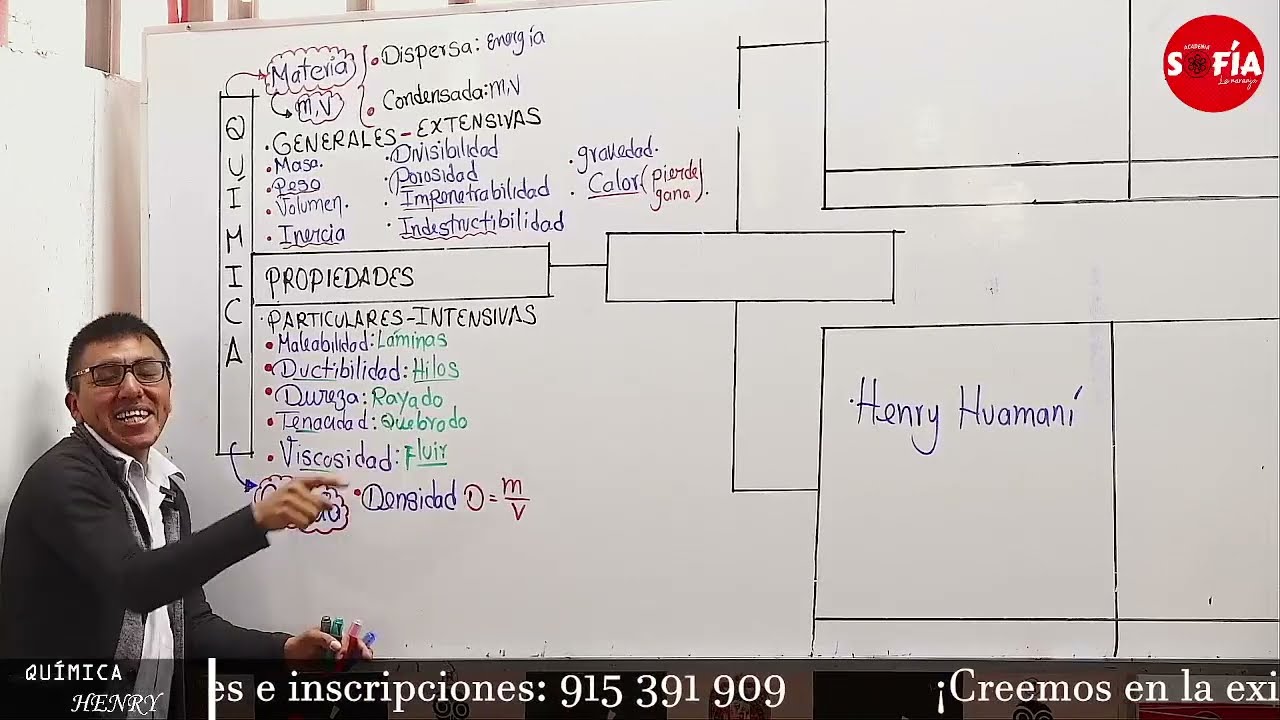 Materia
m,V
• Dispersa: Energía
• Condensada: m,V
QUÍMICA
• GENERALES - EXTENSIVAS
• Masa.
• Peso
• Volumen.
• Inercia
• Divisibilidad
• Porosidad
• Impenetrabilidad
• Indestructibilidad
• gravedad.
• Calor (pierde
gana).
PROPIEDADES
• PARTICULARES - INTENSIVAS
• Maleabilidad: Láminas
• Ductibilidad: Hilos
• Dureza: Rayado
• Tenacidad: Quebrado
• Viscosidad: Fluir
• Densidad D = m/V
• Henry Huamaní
ACADEMIA
SOFÍA
La naranja
QUÍMICA
HENRY
es e inscripciones: 915 391 909
¡Creemos en la exi